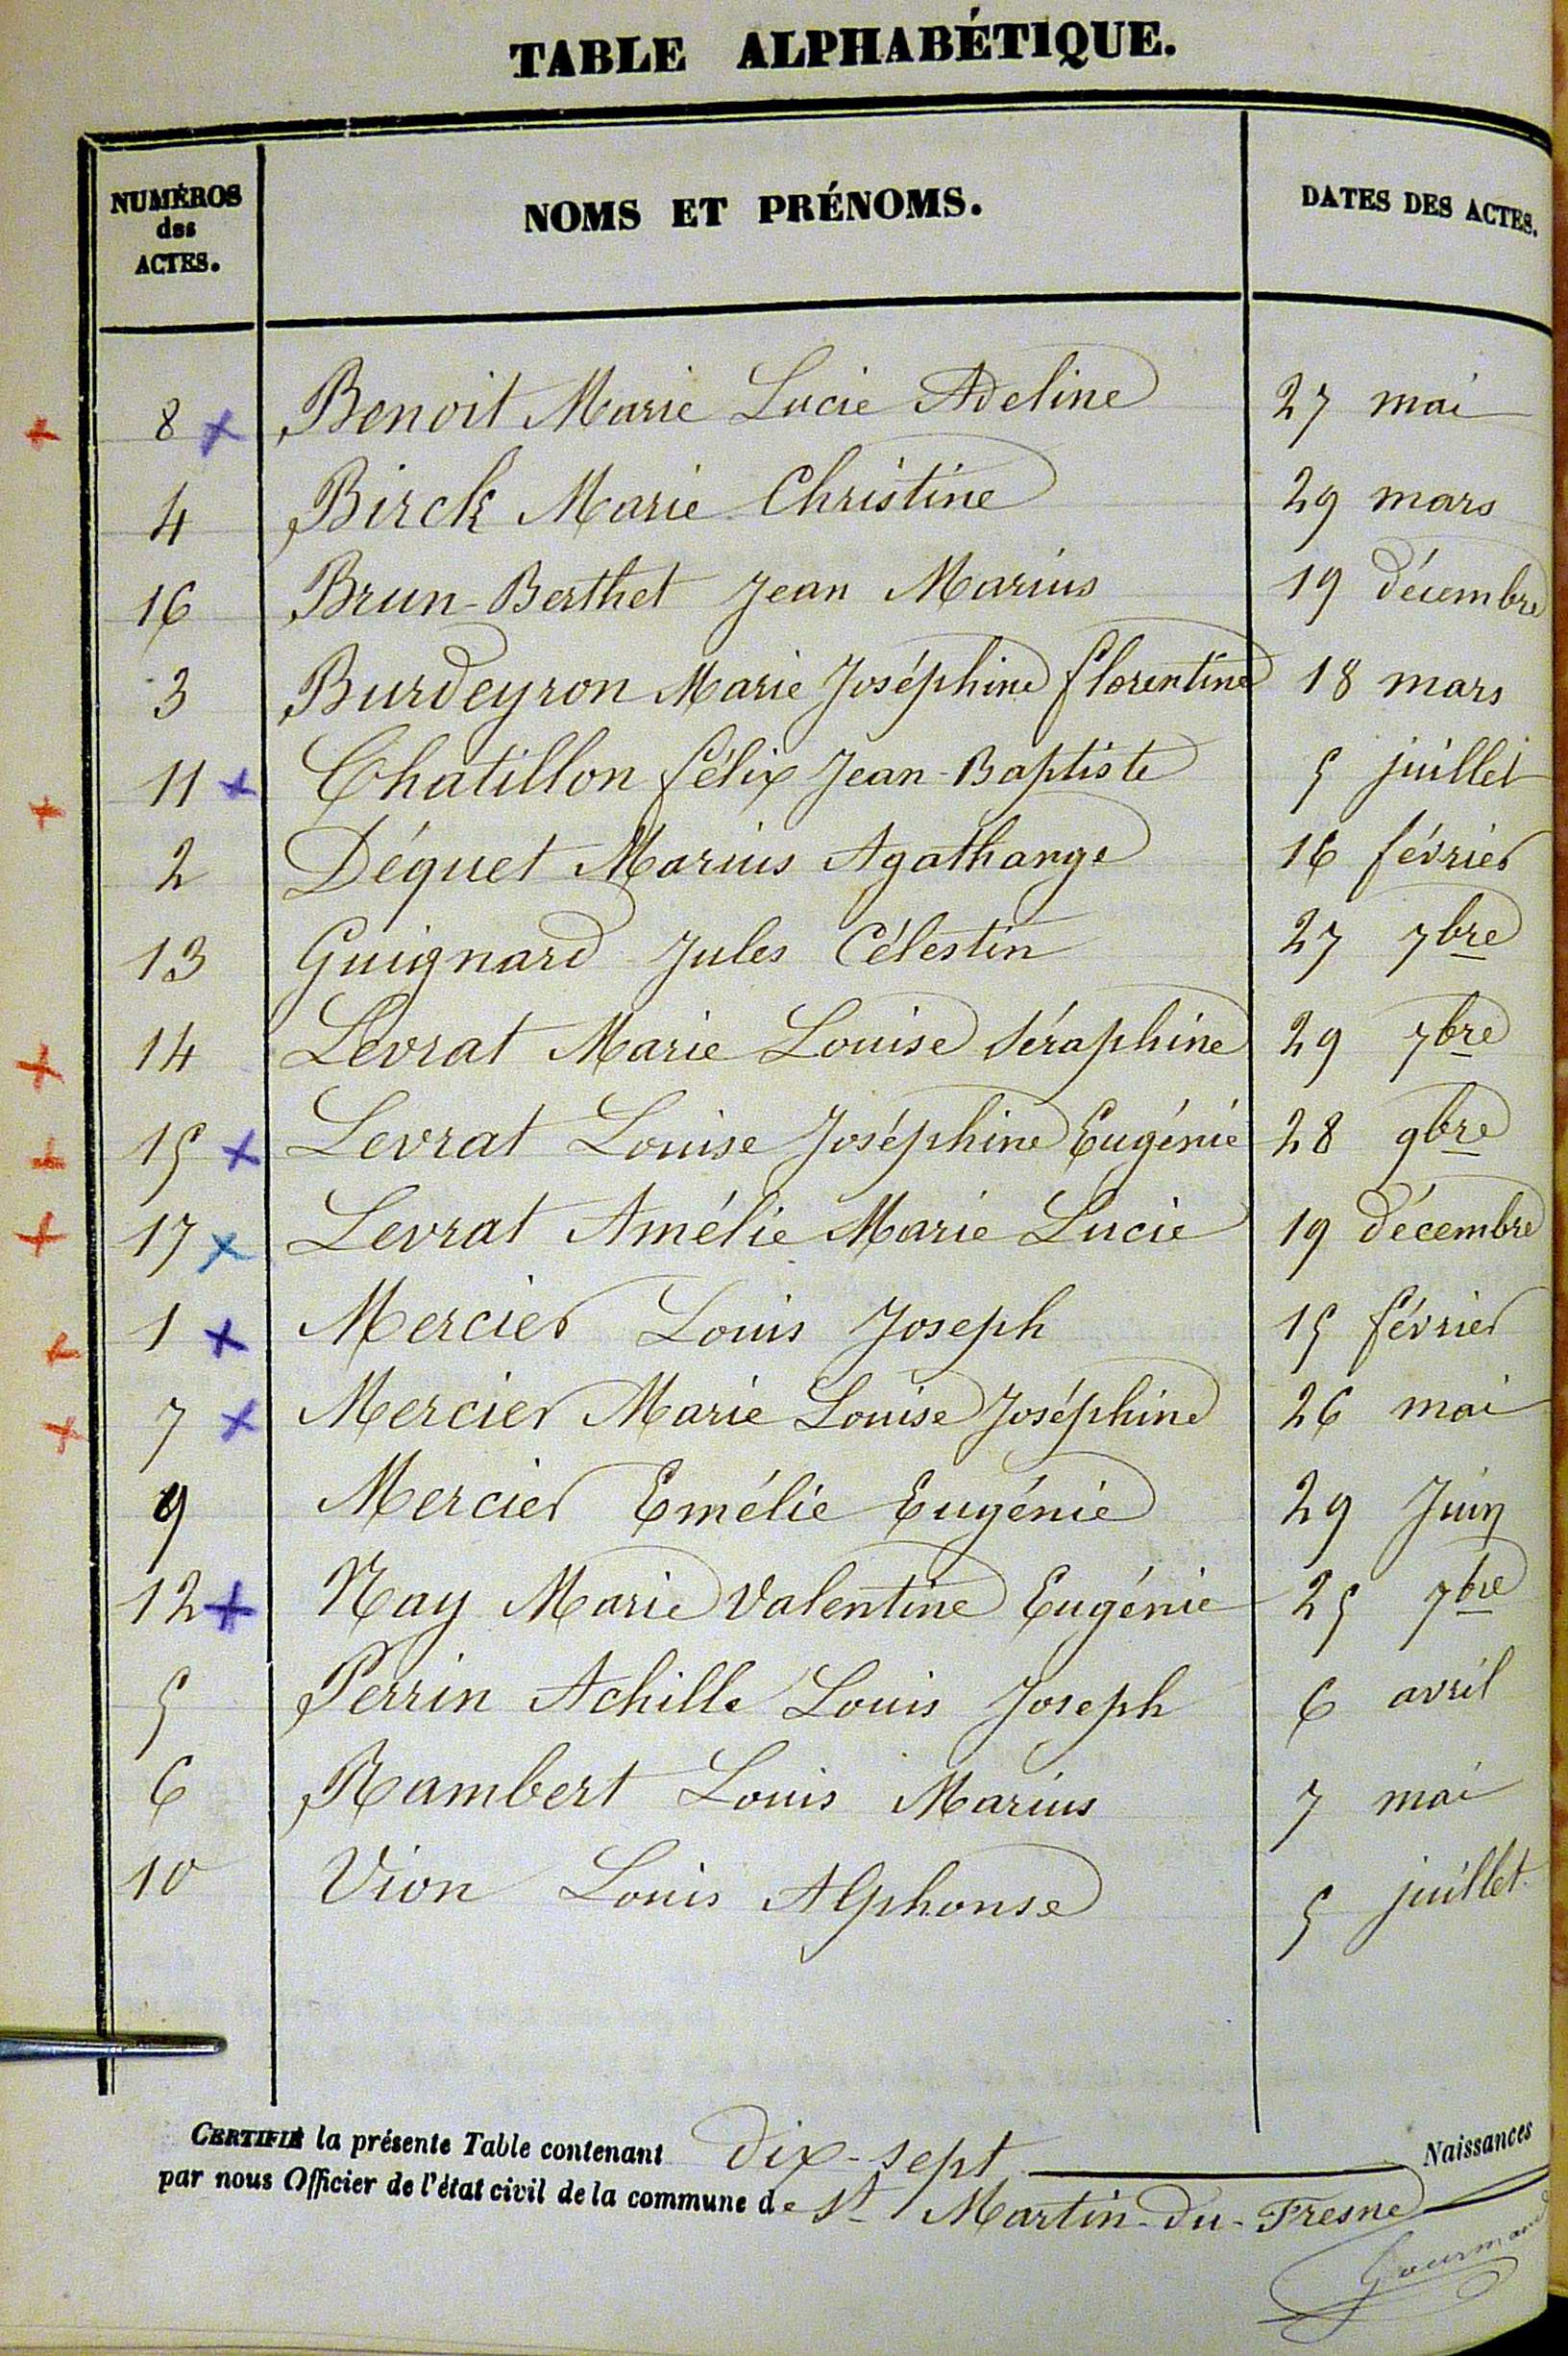 TABLE ALPHABÉTIQUE.
NUMÉROS des ACTES. NOMS ET PRÉNOMS. DATES DES ACTES.
8 Benoit Marie Lucie Adeline 27 mai
4 Birck Marie Christine 29 mars
16 Brun-Berthet Jean Marius 19 décembre
3 Burdeyron Marie Joséphine Florentine 18 mars
11 Chatillon Félix Jean-Baptiste 5 juillet
2 Déquet Marius Agathange 16 février
13 Guignard Jules Célestin 27 7bre
14 Levrat Marie Louise Séraphine 29 7bre
15 Levrat Louise Joséphine Eugénie 28 9bre
17 Levrat Amélie Marie Lucie 19 décembre
1 Mercier Louis Joseph 15 février
7 Mercier Marie Louise Joséphine 26 mai
9 Mercier Emélie Eugénie 29 Juin
12 Nay Marie Valentine Eugénie 25 7bre
5 Perrin Achille Louis Joseph 6 avril
6 Rambert Louis Marius 7 mai
10 Vion Louis Alphonse 5 juillet
CERTIFIÉ la présente Table contenant dix-sept Naissances
par nous Officier de l'état civil de la commune de St Martin-du-Fresne